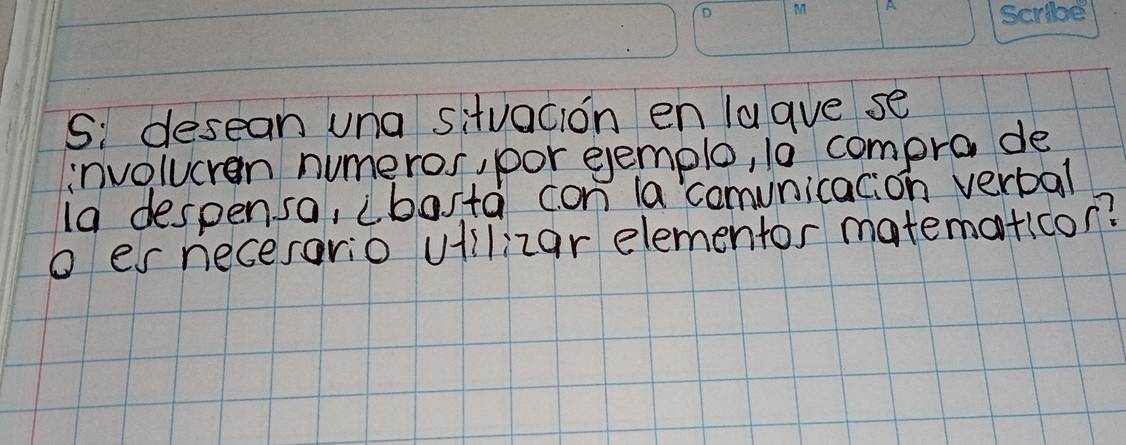 D M A Scribe
Si desean una situación en la que se
involucran numeros, por ejemplo, la compra de
la despensa, ¿basta con la comunicación verbal
o es necesario utilizar elementos matematicos?